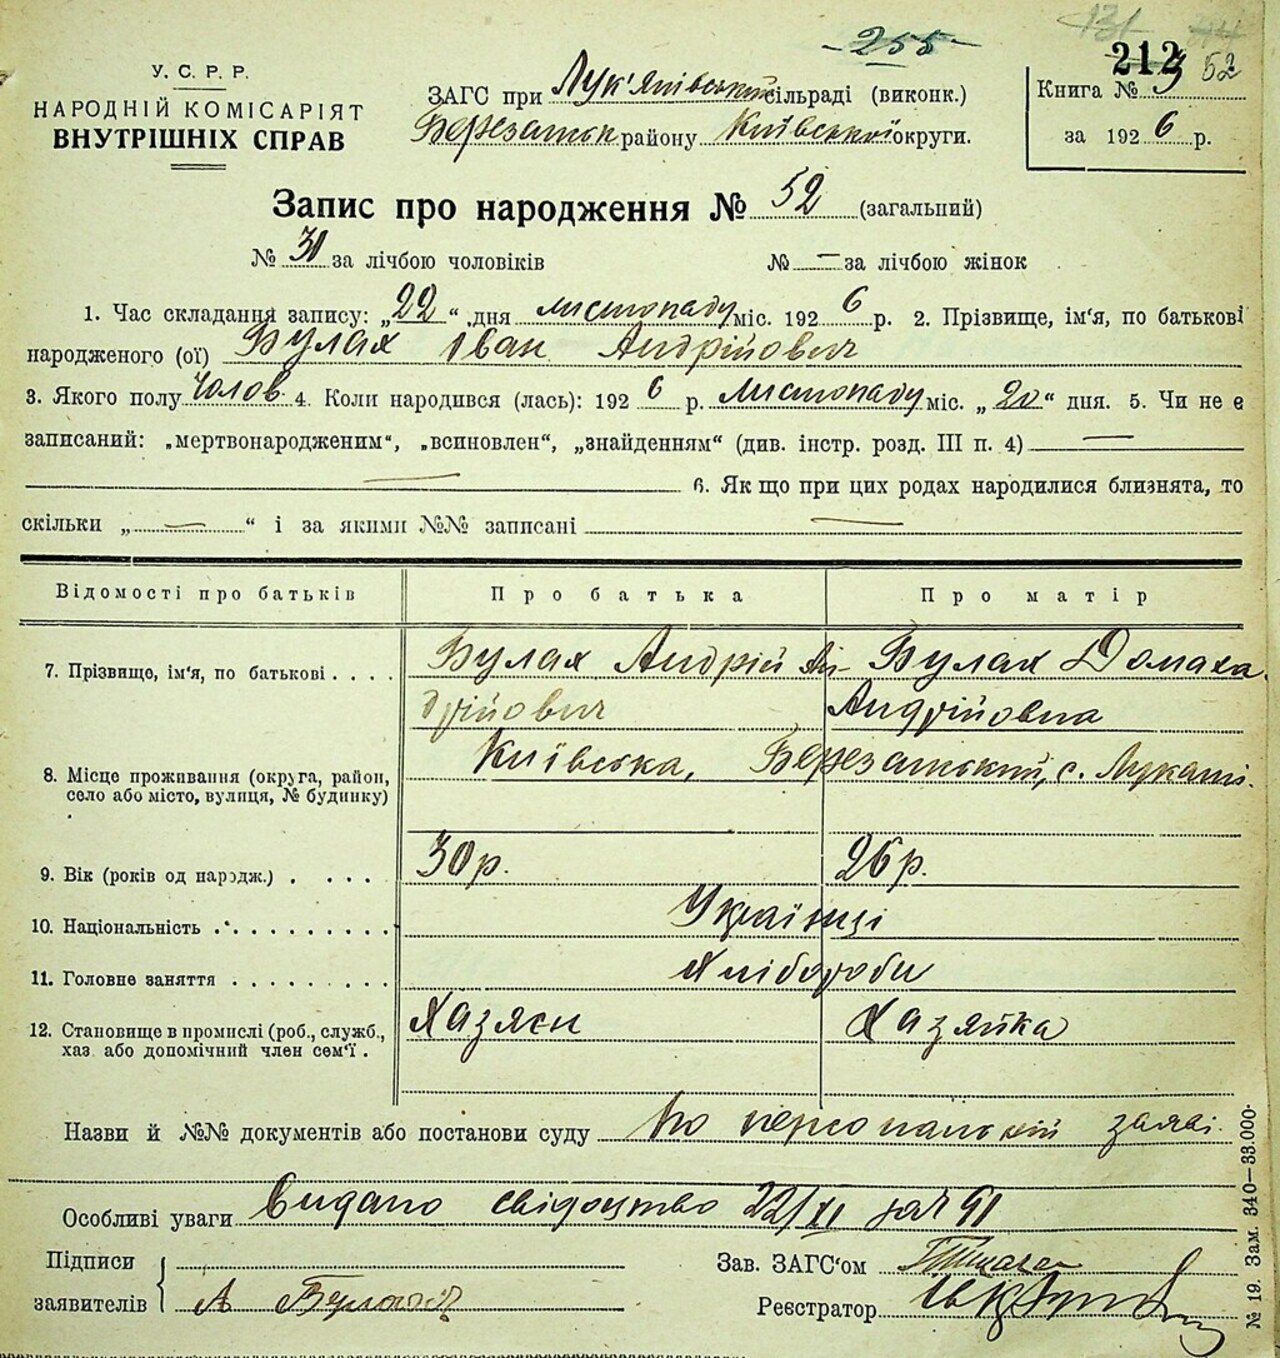 - 255 -
212
52
У. С. Р. Р.
НАРОДНІЙ КОМІСАРІЯТ
ВНУТРІШНІХ СПРАВ
ЗАГС при Лук'янівській сільраді (виконк.)
Березанськ району Київської округи.
Книга № 3
за 1926 р.
Запис про народження № 52 (загальний)
№ 30 за лічбою чоловіків № — за лічбою жінок
1. Час складання запису: „22“ дня листопаду міс. 1926 р. 2. Прізвище, ім'я, по батькові
народженого (ої) Булах Іван Андрійович
3. Якого полу Чолов. 4. Коли народився (лась): 1926 р. Листопаду міс. „20“ дня. 5. Чи не є
записаний: „мертвонародженим“, „всиновлен“, „знайденням“ (див. інстр. розд. III п. 4) —
— 6. Як що при цих родах народилися близнята, то
скільки „ — “ і за якими №№ записані —
Відомості про батьків Про батька Про матір
7. Прізвище, ім'я, по батькові . . . . Булах Андрій Ан- Булах Домаха
дрійович Андріївна
8. Місце проживання (округа, район,
село або місто, вулиця, № будинку)
Київська, Березанський, с.
9. Вік (років од народж.) . . . . 30 р. 26 р.
10. Національність . . . . . . . . . . Українці
11. Головне заняття . . . . . . . . . Хлібороби
12. Становище в промислі (роб., служб.,
хаз. або допомічний член сем'ї .
Хазяєн Хазяйка
Назви й №№ документів або постанови суду По персональній заяві.
Особливі уваги Видано свідоцтво 22/XI за № 91
Підписи
заявителів А
Зав. ЗАГС'ом
Реєстратор
№ 19. Зам. 340—33.000.